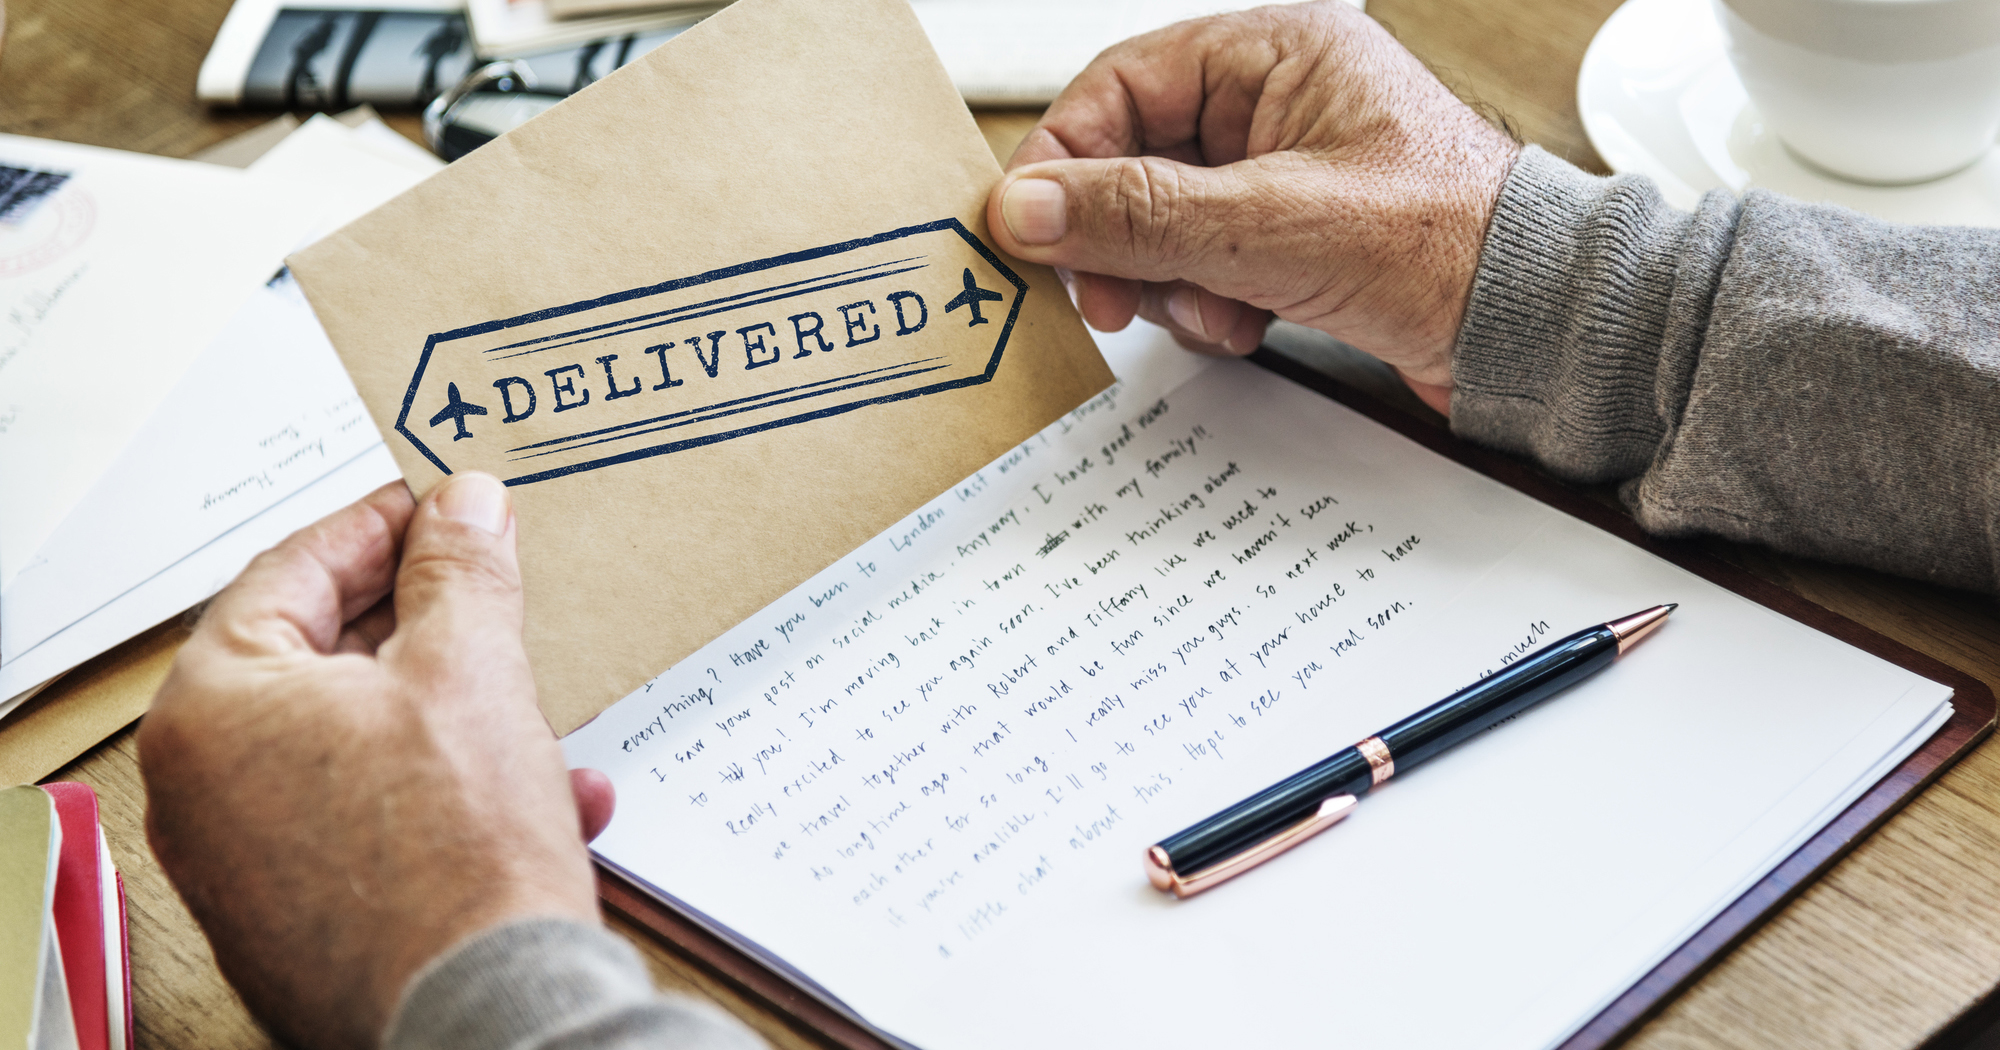 DELIVERED
last week! I
everything? Have you been to London
I saw your post on social media. Anyway, I have good news
to tell you! I'm moving back in town with my family!!
Really excited to see you again soon. I've been thinking about
we travel together with Robert and Tiffany like we used to
do longtime ago, that would be fun since we haven't seen
each other for so long.. I really miss you guys. So next week,
if you're avalible, I'll go to see you at your house to have
a little chat about this. Hope to see you real soon.
so much